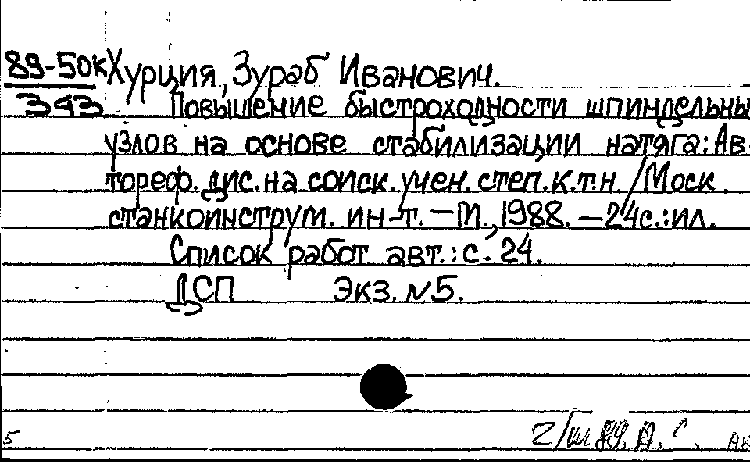 89-50к Хурция, Зураб Иванович.
343 Повышение быстроходности шпиндельны
узлов на основе стабилизации натяга: Ав-
тореф. дис. на соиск. учен. степ. к.т.н / Моск.
станкоинструм. ин-т. – М., 1988. – 24с.: ил.
Список работ авт.: с. 24.
ДСП Экз. №5.
5